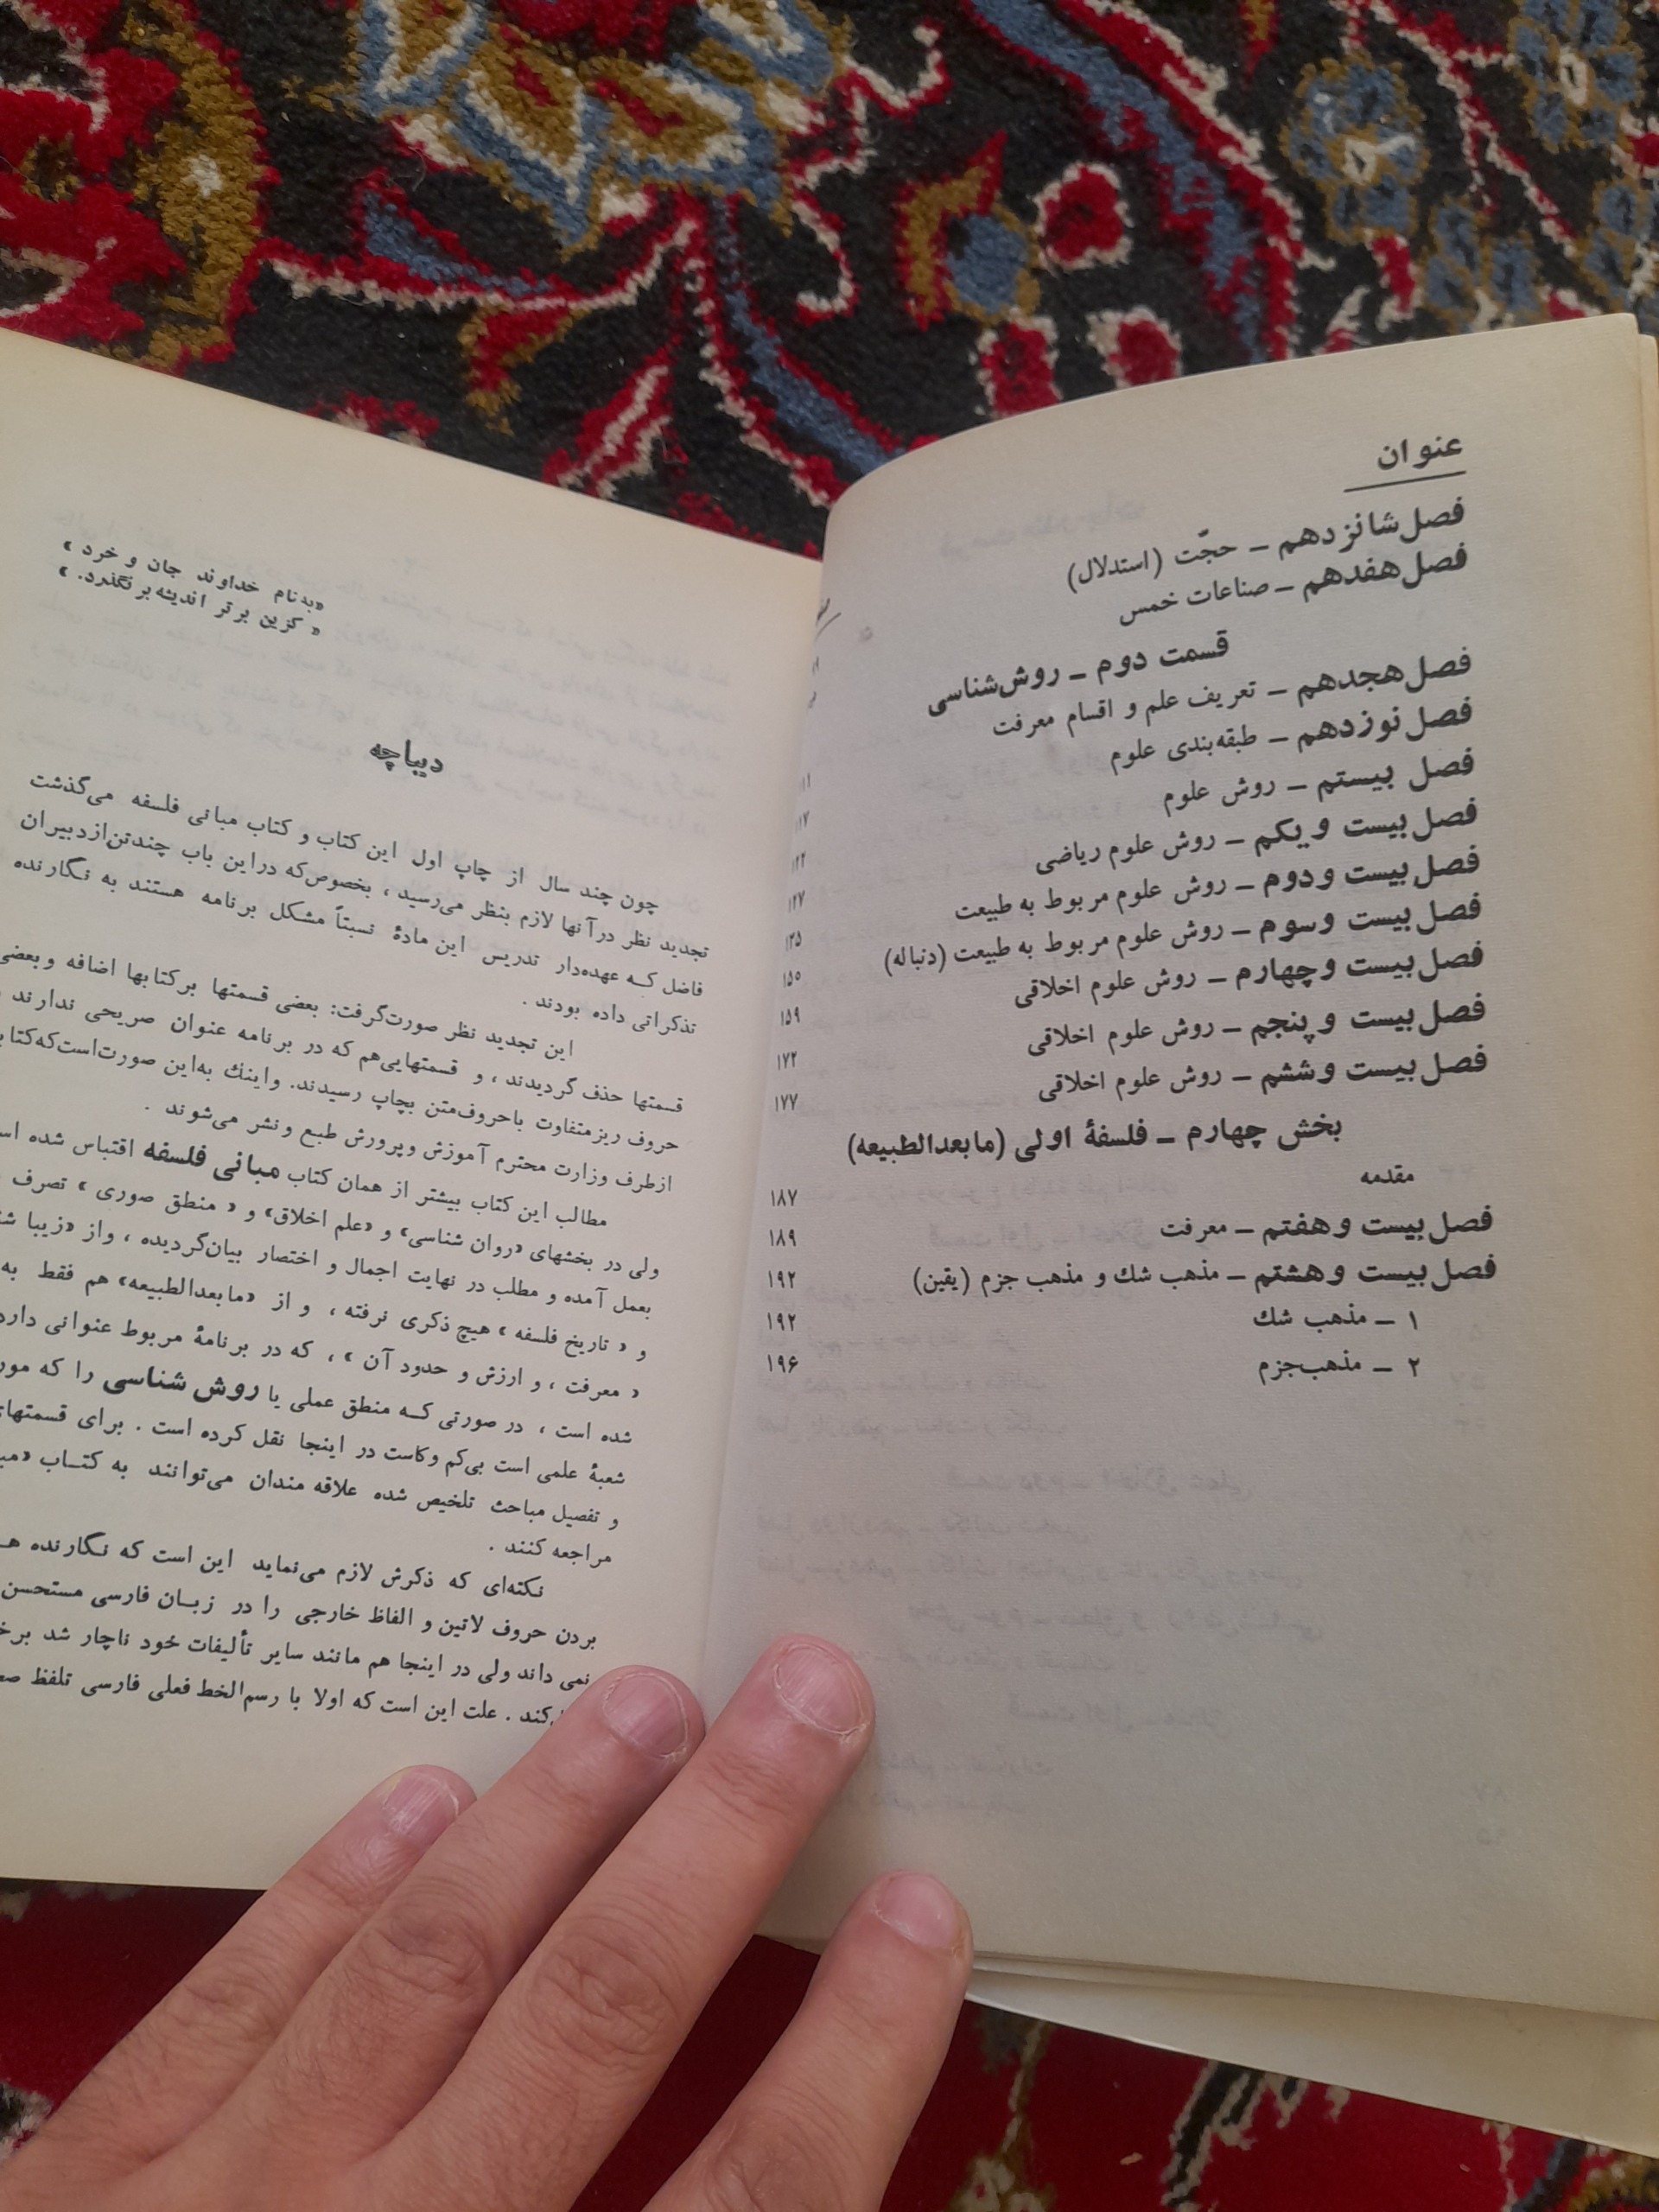 عنوان
فصل شانزدهم ـ حجّت (استدلال)
فصل هفدهم ـ صناعات خمس
قسمت دوم ـ روش‌شناسی
فصل هجدهم ـ تعریف علم و اقسام معرفت
فصل نوزدهم ـ طبقه‌بندی علوم
فصل بیستم ـ روش علوم
فصل بیست و یکم ـ روش علوم ریاضی
فصل بیست و دوم ـ روش علوم مربوط به طبیعت
فصل بیست و سوم ـ روش علوم مربوط به طبیعت (دنباله)
فصل بیست و چهارم ـ روش علوم اخلاقی ۱۵۹
فصل بیست و پنجم ـ روش علوم اخلاقی ۱۷۲
فصل بیست و ششم ـ روش علوم اخلاقی ۱۷۷
بخش چهارم ـ فلسفهٔ اولی (مابعدالطبیعه)
مقدمه ۱۸۷
فصل بیست و هفتم ـ معرفت ۱۸۹
فصل بیست و هشتم ـ مذهب شك و مذهب جزم (یقین) ۱۹۲
۱ ـ مذهب شك ۱۹۲
۲ ـ مذهب جزم ۱۹۶
«به نام خداوند جان و خرد»
«کزین برتر اندیشه برنگذرد.»
دیباچه
چون چند سال از چاپ اول این کتاب و کتاب مبانی فلسفه می‌گذشت
تجدید نظر در آنها لازم بنظر می‌رسید، بخصوص که در این باب چندتن از دبیران
فاضل که عهده‌دار تدریس این مادهٔ نسبتاً مشکل برنامه هستند به نگارنده
تذکراتی داده بودند.
این تجدید نظر صورت گرفت: بعضی قسمتها بر کتابها اضافه و بعضی
قسمتها حذف گردیدند، و قسمتهایی هم که در برنامه عنوان صریحی ندارند
حروف ریز متفاوت با حروف متن بچاپ رسیدند. و اینك به این صورت است که
از طرف وزارت محترم آموزش و پرورش طبع و نشر می‌شوند.
مطالب این کتاب بیشتر از همان کتاب مبانی فلسفه اقتباس شده
ولی در بخشهای «روان شناسی» و «علم اخلاق» و «منطق صوری» تصرف
بعمل آمده و مطلب در نهایت اجمال و اختصار بیان گردیده، و از «زیبا
و «تاریخ فلسفه» هیچ ذکری نرفته، و از «مابعدالطبیعه» هم فقط به
«معرفت، و ارزش و حدود آن»، که در برنامهٔ مربوط عنوانی دارد
شده است، در صورتی که منطق عملی یا روش شناسی را که
شعبهٔ علمی است بی‌کم و کاست در اینجا نقل کرده است. برای قسمتهای
و تفصیل مباحث تلخیص شده علاقه مندان می‌توانند به کتاب
مراجعه کنند.
نکته‌ای که ذکرش لازم می‌نماید این است که نگارنده
بردن حروف لاتین و الفاظ خارجی را در زبان فارسی مستحسن
نمی داند ولی در اینجا هم مانند سایر تألیفات خود ناچار شد
کند. علت این است که اولا با رسم‌الخط فعلی فارسی تلفظ